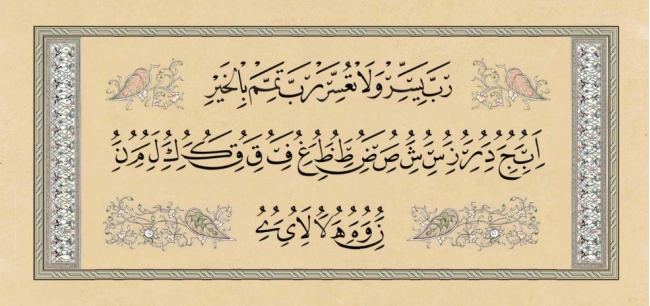 رَبِّ يَسِّرْ وَلَا تُعَسِّرْ رَبِّ تَمِّمْ بِالْخَيْرِ
اَ بُ جُ دُ رُ زُ سُ شُ صُ ضُ طُ ظُ عُ غُ فُ قُ كُ لُ مُ نُ
وُ هُ لَا لَا یُ